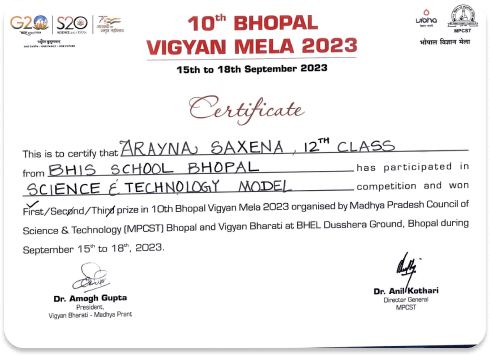 G20
S20
10th BHOPAL
VIGYAN MELA 2023
15th to 18th September 2023
MPCST
भोपाल विज्ञान मेला
Certificate
This is to certify that ARAYNA SAXENA, 12TH CLASS
from BHIS SCHOOL BHOPAL has participated in
SCIENCE & TECHNOLOGY MODEL competition and won
First/Second/Third prize in 10th Bhopal Vigyan Mela 2023 organised by Madhya Pradesh Council of
Science & Technology (MPCST) Bhopal and Vigyan Bharati at BHEL Dusshera Ground, Bhopal during
September 15th to 18th, 2023.
Dr. Amogh Gupta
President,
Vigyan Bharati - Madhya Prant
Dr. Anil Kothari
Director General
MPCST